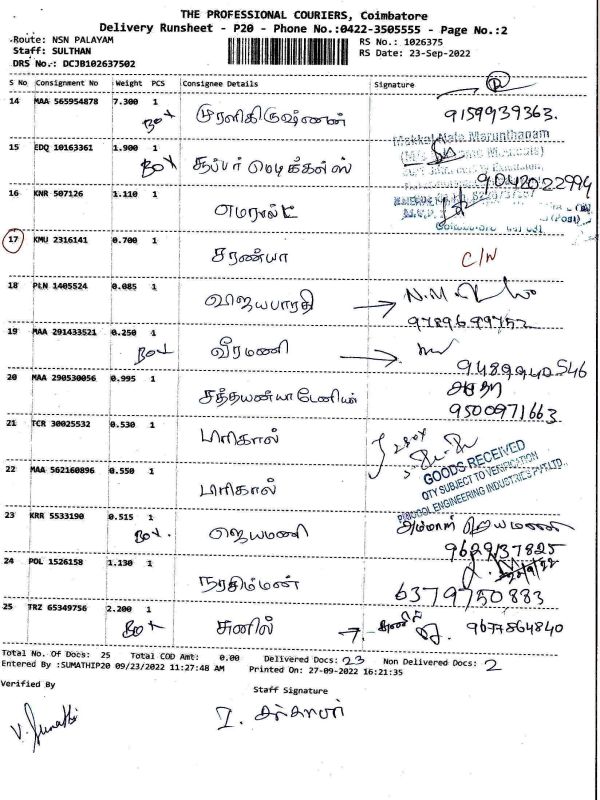 THE PROFESSIONAL COURIERS, Coimbatore
Delivery Runsheet - P20 - Phone No.:0422-3505555 - Page No.:2
Route: NSN PALAYAM
RS No.: 1026375
Staff: SULTHAN
RS Date: 23-Sep-2022
DRS No.: DCJB102637502
S No Consignment No Weight PCS Consignee Details Signature
14 MAA 565954878 7.300 1 BOX முரளிகிருஷ்ணன் 9159939363.
Makkal Nala Marunthanam
15 EDQ 10163361 1.900 1 BOX சூப்பர் மெடிக்கல்ஸ் 9042022994
16 KNR 507126 1.110 1 எமரால்ட்
17 KMU 2316141 0.700 1 சரண்யா C/N
18 PLN 1405524 0.085 1 விஜயபாரதி
19 MAA 291433521 0.250 1 BOX வீரமணி
20 MAA 290530056 0.995 1 9500971663
21 TCR 30025532 0.530 1 பரிகால்
GOODS RECEIVED
QTY SUBJECT TO VERIFICATION
ENGINEERING INDUSTRIES PVT.LTD.,
22 MAA 562160896 0.550 1 பரிகால்
23 KRR 5533190 0.515 1 BOX. ஜெயமணி 9629137825
24 POL 1526158 1.130 1 நரசிம்மன் 6379750883
25 TRZ 65349756 2.200 1 BOX சுனில் 9677864840
Total No. Of Docs: 25 Total COD Amt: 0.00 Delivered Docs: 23 Non Delivered Docs: 2
Entered By :SUMATHIP20 09/23/2022 11:27:48 AM Printed On: 27-09-2022 16:21:35
Verified By
Staff Signature
V. Sumathi